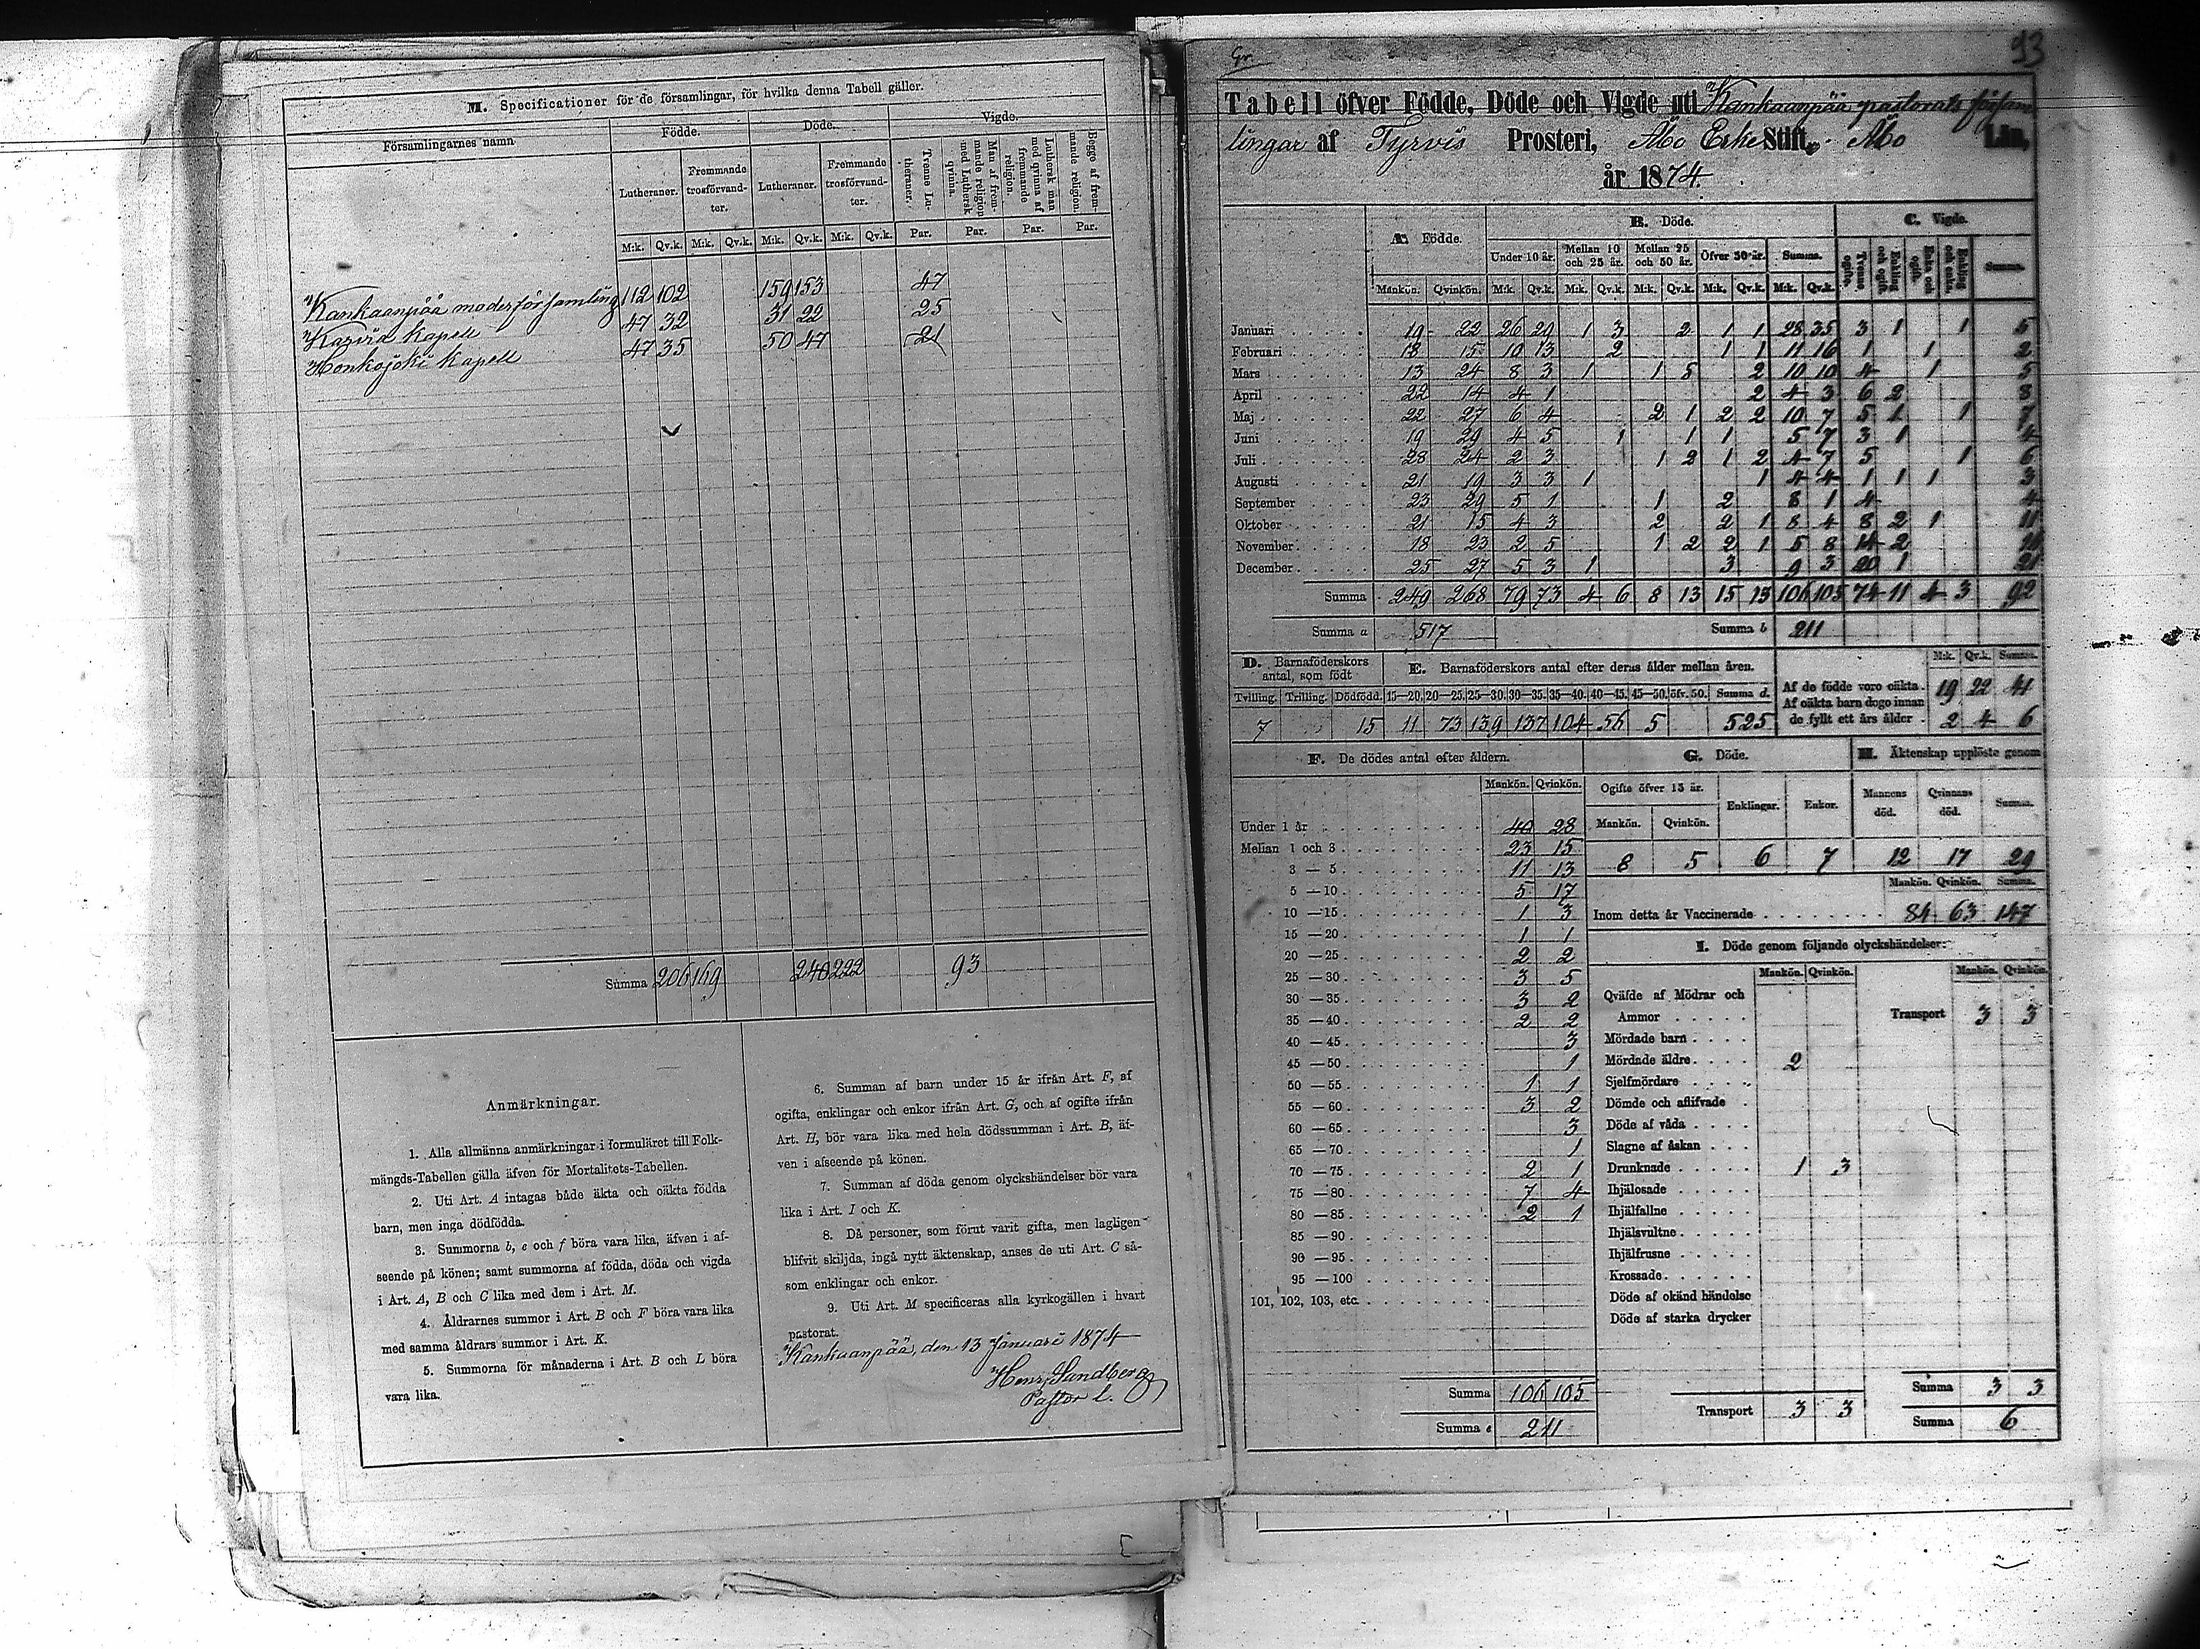 M. Specificationer för de församlingar, för hvilka denna Tabell gäller.
Församlingarnes namn
Födde.
Döde.
Vigde.
Lutheraner.
Fremmande trosförvandter.
Lutheraner.
Fremmande trosförvandter.
Tvenne Lutheraner.
Man af fremmande religion med Luthersk qvinna.
Luthersk man med qvinna af fremmande religion.
Begge af fremmande religion.
M:k. Qv.k. M:k. Qv.k. M:k. Qv.k. M:k. Qv.k. Par. Par. Par. Par.
Kankaanpää moderförsamling 112 102 159 153 47
Karvia Kapell 47 32 31 22 25
Honkajoki Kapell 47 35 50 47 21
Summa 206 169 240 222 93
Anmärkningar.
1. Alla allmänna anmärkningar i formuläret till Folk-
mängds-Tabellen gälla äfven för Mortalitets-Tabellen.
2. Uti Art. A intagas både äkta och oäkta födda
barn, men inga dödfödda.
3. Summorna b, e och f böra vara lika, äfven i af-
seende på könen; samt summorna af födda, döda och vigda
i Art. A, B och C lika med dem i Art. M.
4. Åldrarnes summor i Art. B och F böra vara lika
med samma åldrars summor i Art. K.
5. Summorna för månaderna i Art. B och L böra
vara lika.
6. Summan af barn under 15 år ifrån Art. F, af
ogifta, enklingar och enkor ifrån Art. G, och af ogifte ifrån
Art. H, bör vara lika med hela dödssumman i Art. B, äf-
ven i afseende på könen.
7. Summan af döda genom olyckshändelser bör vara
lika i Art. I och K.
8. Då personer, som förut varit gifta, men lagligen
blifvit skiljda, ingå nytt äktenskap, anses de uti Art. C så-
som enklingar och enkor.
9. Uti Art. M specificeras alla kyrkogällen i hvart
pastorat.
Kankaanpää, den 13 Januari 1874
Henr. Sandberg
Pastor l.
Gr.
93
Tabell öfver Födde, Döde och Vigde uti Kankaanpää pastorats försam
lingar af Tyrvis Prosteri, Åbo Erke Stift, Åbo Län,
år 1874.
A. Födde.
B. Döde.
C. Vigde.
Under 10 år. Mellan 10 och 25 år. Mellan 25 och 50 år. Öfver 50 år. Summa.
Tvenne ogifte. Enkling och ogift. Enka och ogift. Enkling och enka. Summa.
Mankön. Qvinkön. M:k. Qv.k. M:k. Qv.k. M:k. Qv.k. M:k. Qv.k. M:k. Qv.k.
Januari 19 22 26 29 1 3 2 1 1 28 35 3 1 1 5
Februari 18 15 10 13 2 1 1 11 16 1 1 2
Mars 13 24 8 3 1 1 5 2 10 10 4 1 5
April 22 14 4 1 2 4 3 6 2 8
Maj 22 27 6 4 2 1 2 2 10 7 5 1 1 7
Juni 19 29 4 5 1 1 1 5 7 3 1 4
Juli 28 24 2 3 1 2 1 2 4 7 5 1 6
Augusti 21 19 3 3 1 1 4 4 1 1 1 3
September 23 29 5 1 1 2 8 1 4 4
Oktober 21 15 4 3 2 2 1 8 4 8 2 1 11
November 18 23 2 5 1 2 2 1 5 8 14 2
December 25 27 5 3 1 3 9 3 20 1 21
Summa 249 268 79 73 4 6 8 13 15 13 106 105 74 11 4 3 92
Summa a 517 Summa b 211
D. Barnaföderskors antal, som födt
E. Barnaföderskors antal efter deras ålder mellan åren.
M:k. Qv.k. Summa.
Tvilling. Trilling. Dödfödd. 15—20. 20—25. 25—30. 30—35. 35—40. 40—45. 45—50. öfv. 50. Summa d.
7 15 11 73 139 137 104 56 5 525
Af de födde voro oäkta 19 22 41
Af oäkta barn dogo innan
de fyllt ett års ålder 2 4 6
F. De dödes antal efter åldern.
Mankön. Qvinkön.
Under 1 år 40 28
Mellan 1 och 3 23 15
3 — 5 11 13
5 — 10 5 17
10 — 15 1 3
15 — 20 1 1
20 — 25 2 2
25 — 30 3 5
30 — 35 3 2
35 — 40 2 2
40 — 45 3
45 — 50 1
50 — 55 1 1
55 — 60 3 2
60 — 65 3
65 — 70 1
70 — 75 2 1
75 — 80 7 4
80 — 85 2 1
85 — 90
90 — 95
95 — 100
101, 102, 103, etc.
Summa 106 105
Summa e 211
G. Döde.
Ogifte öfver 15 år. Enklingar. Enkor.
Mankön. Qvinkön.
8 5 6 7
H. Äktenskap upplöste genom
Mannens död. Qvinnans död. Summa.
12 17 29
Mankön. Qvinkön. Summa.
Inom detta år Vaccinerade 84 63 147
I. Döde genom följande olyckshändelser:
Mankön. Qvinkön. Mankön. Qvinkön.
Qväfde af Mödrar och
Ammor
Transport 3 3
Mördade barn
Mördade äldre 2
Sjelfmördare
Dömde och aflifvade
Döde af våda
Slagne af åskan
Drunknade 1 3
Ihjälosade
Ihjälfallne
Ihjälsvultne
Ihjälfrusne
Krossade
Döde af okänd händelse
Döde af starka drycker
Transport 3 3
Summa 3 3
Summa 6